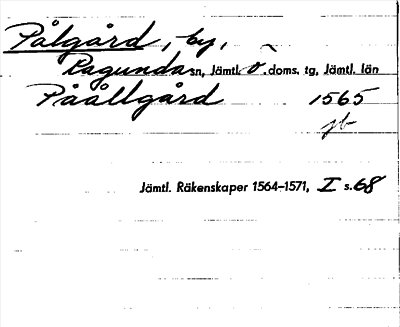 Pålgård, by,
Ragunda sn, Jämtl. ö. doms. tg, Jämtl. län
Påållgård 1565
jb
Jämtl. Räkenskaper 1564–1571, I s. 68